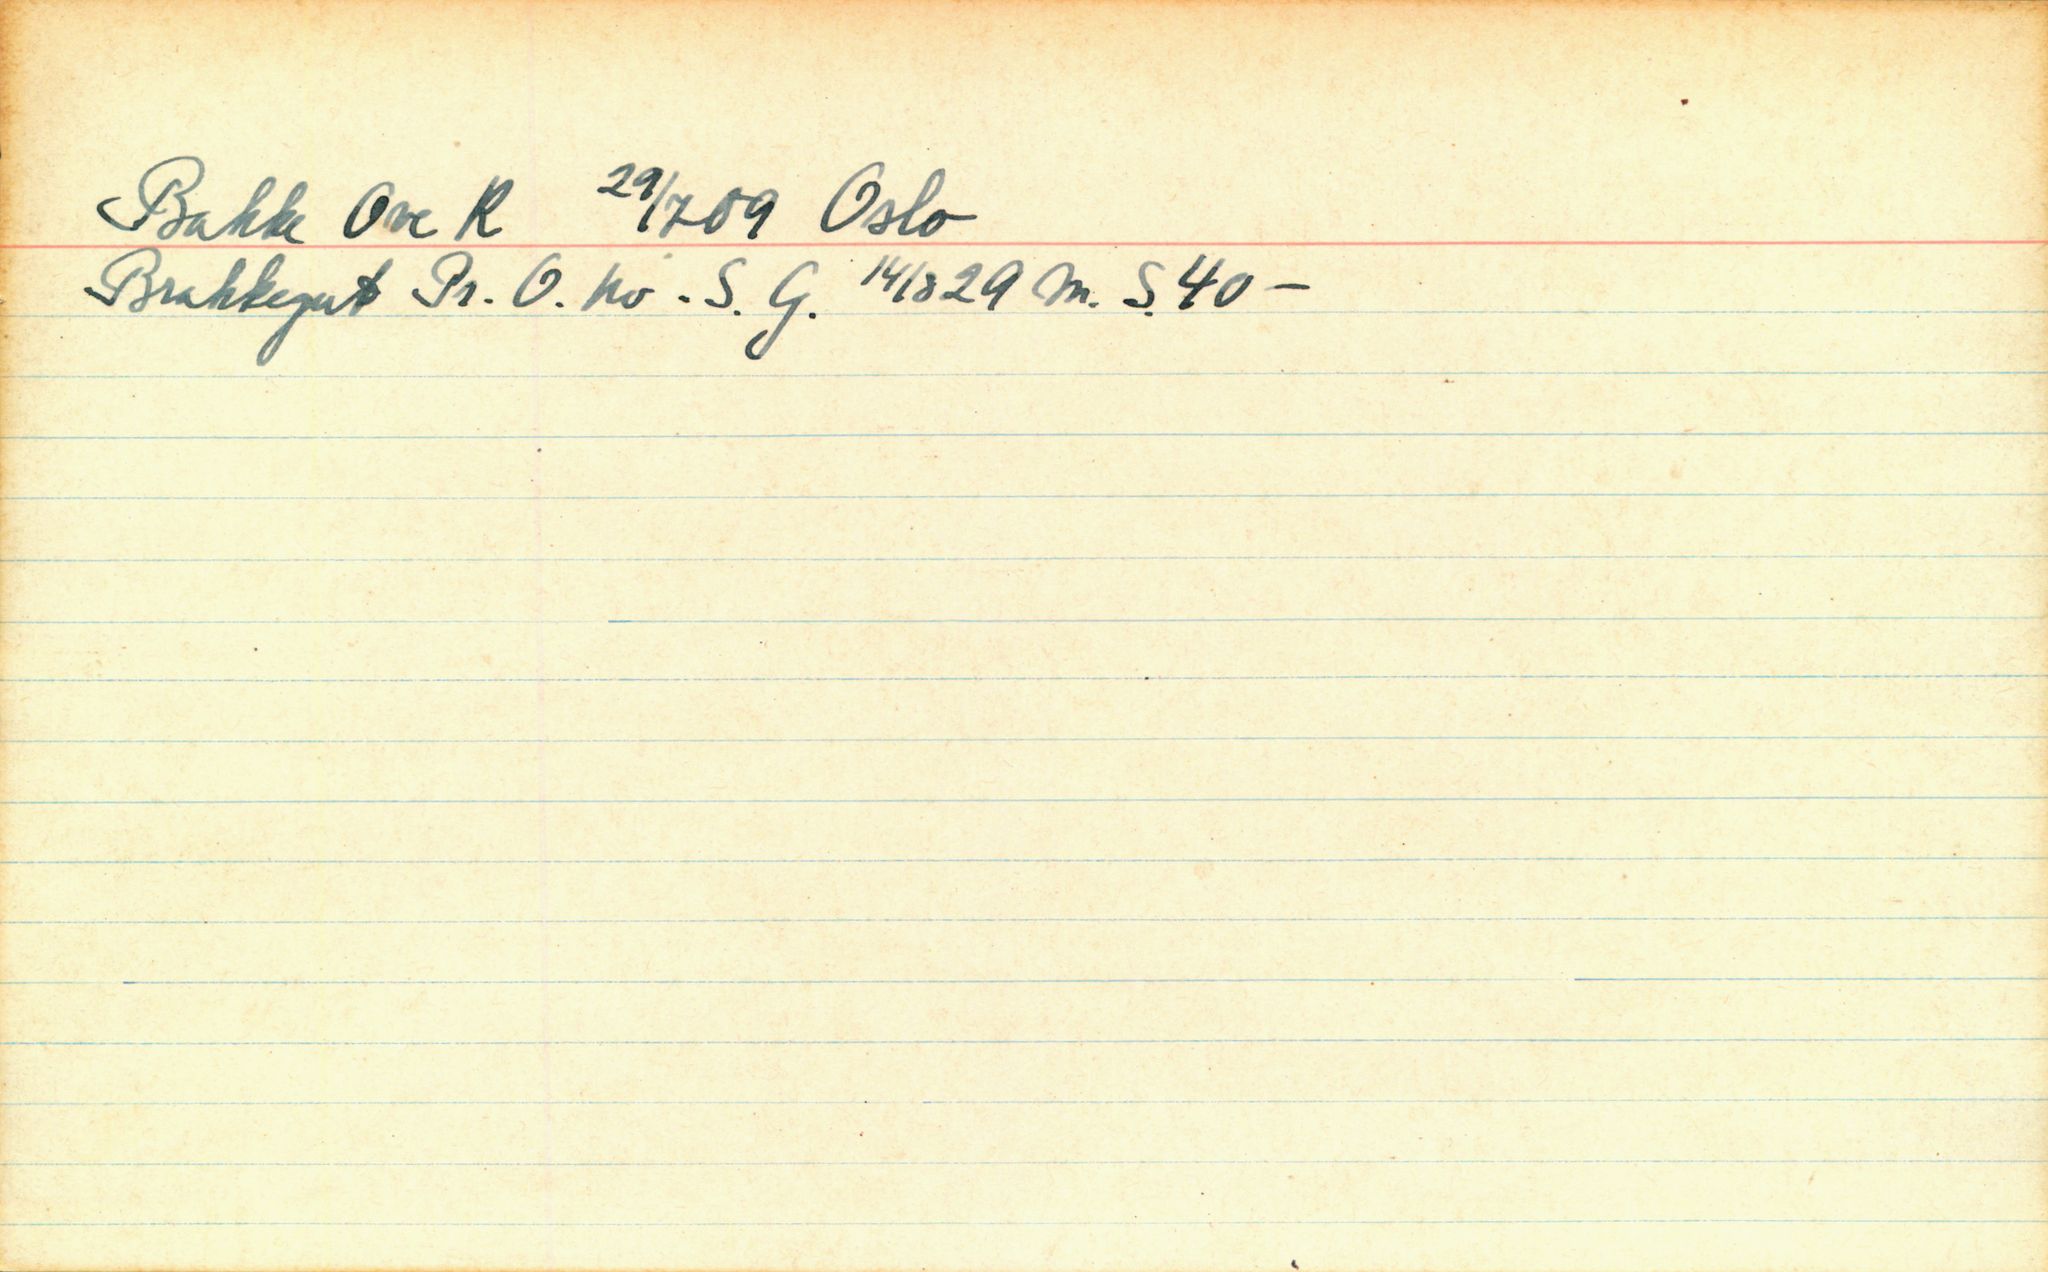 Bakke Ove R 29/7 09 Oslo
Brakkegut Pr. O. No. S. G. 14/8 29 M. S. 40 –